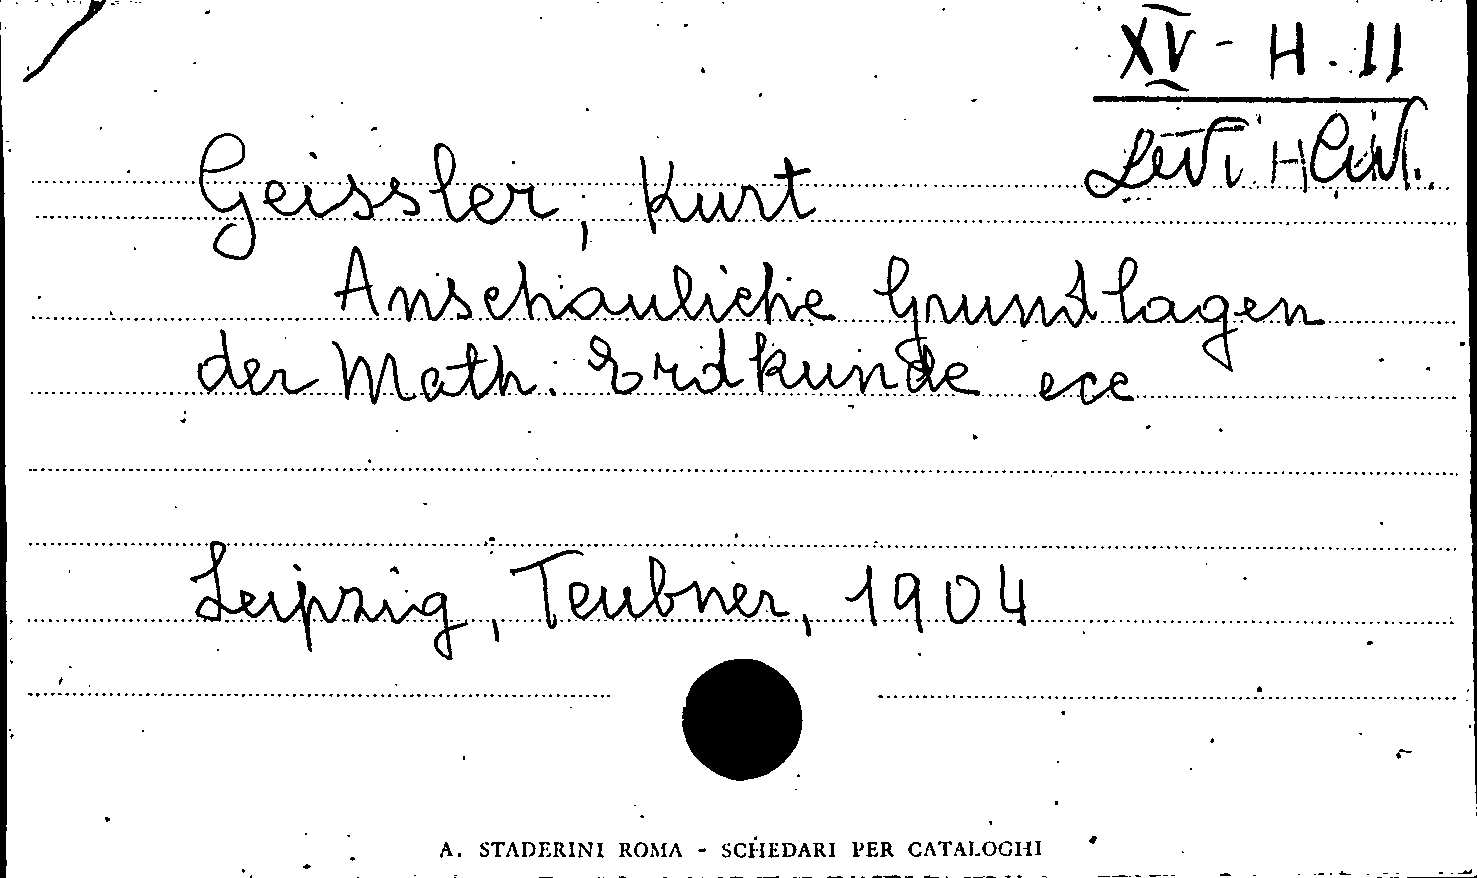 XV - H. 11
Levi
Geissler, Kurt
Anschauliche Grundlagen
der Math. Erdkunde ecc
Leipzig, Teubner, 1904
A. STADERINI ROMA - SCHEDARI PER CATALOGHI